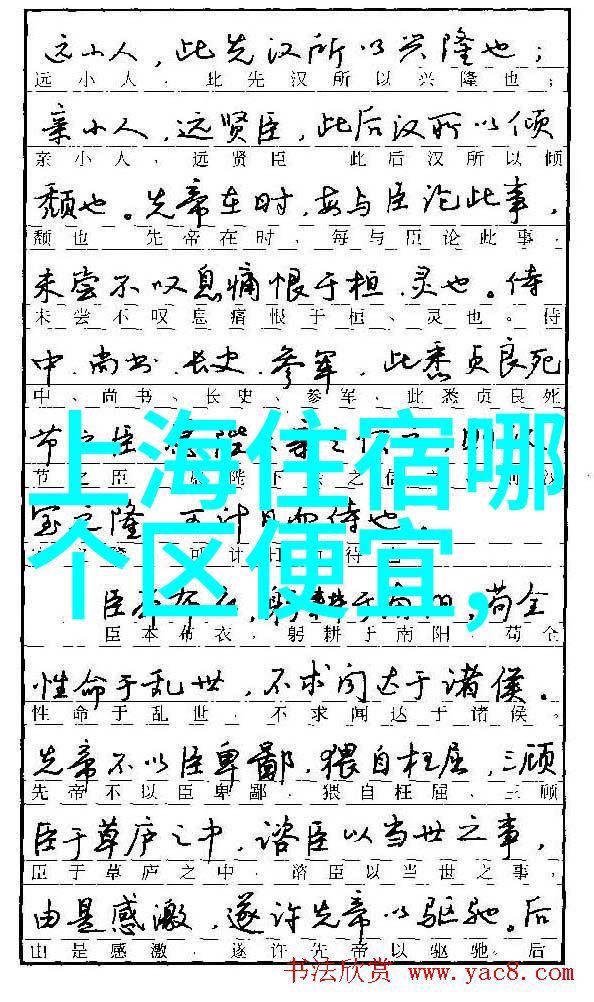 远小人，此先汉所以兴隆也；
远小人，此先汉所以兴隆也；
亲小人，远贤臣，此后汉所以倾
亲小人、远贤臣 此后汉所以倾
颓也。先帝在时，每与臣论此事，
颓也 先帝在时，每与臣论此事，
未尝不叹息痛恨于桓、灵也。侍
未尝不叹息痛恨于桓、灵也。侍
中、尚书、长史、参军，此悉贞良死
中、尚书、长史、参军、此悉贞良死
节之臣
节之臣
上海住宿哪
之隆，可计日而待也。
可计
个区便宜,
臣本布衣，躬耕于南阳，苟全
臣本布衣，躬耕于南阳，苟全
性命于乱世，不求闻达于诸侯。
性命于乱世，不求闻达于诸侯。
先帝不以臣卑鄙，猥自枉屈，三顾
先帝不以臣卑鄙，猥自枉屈、三顾
臣于草庐之中，谘臣以当世之事，
臣于草庐之中，谘臣以当世之事，
由是感激，遂许先帝以驱驰。后
由是感激，遂许先帝以驱驰。后
书法欣赏 www.yac8.com